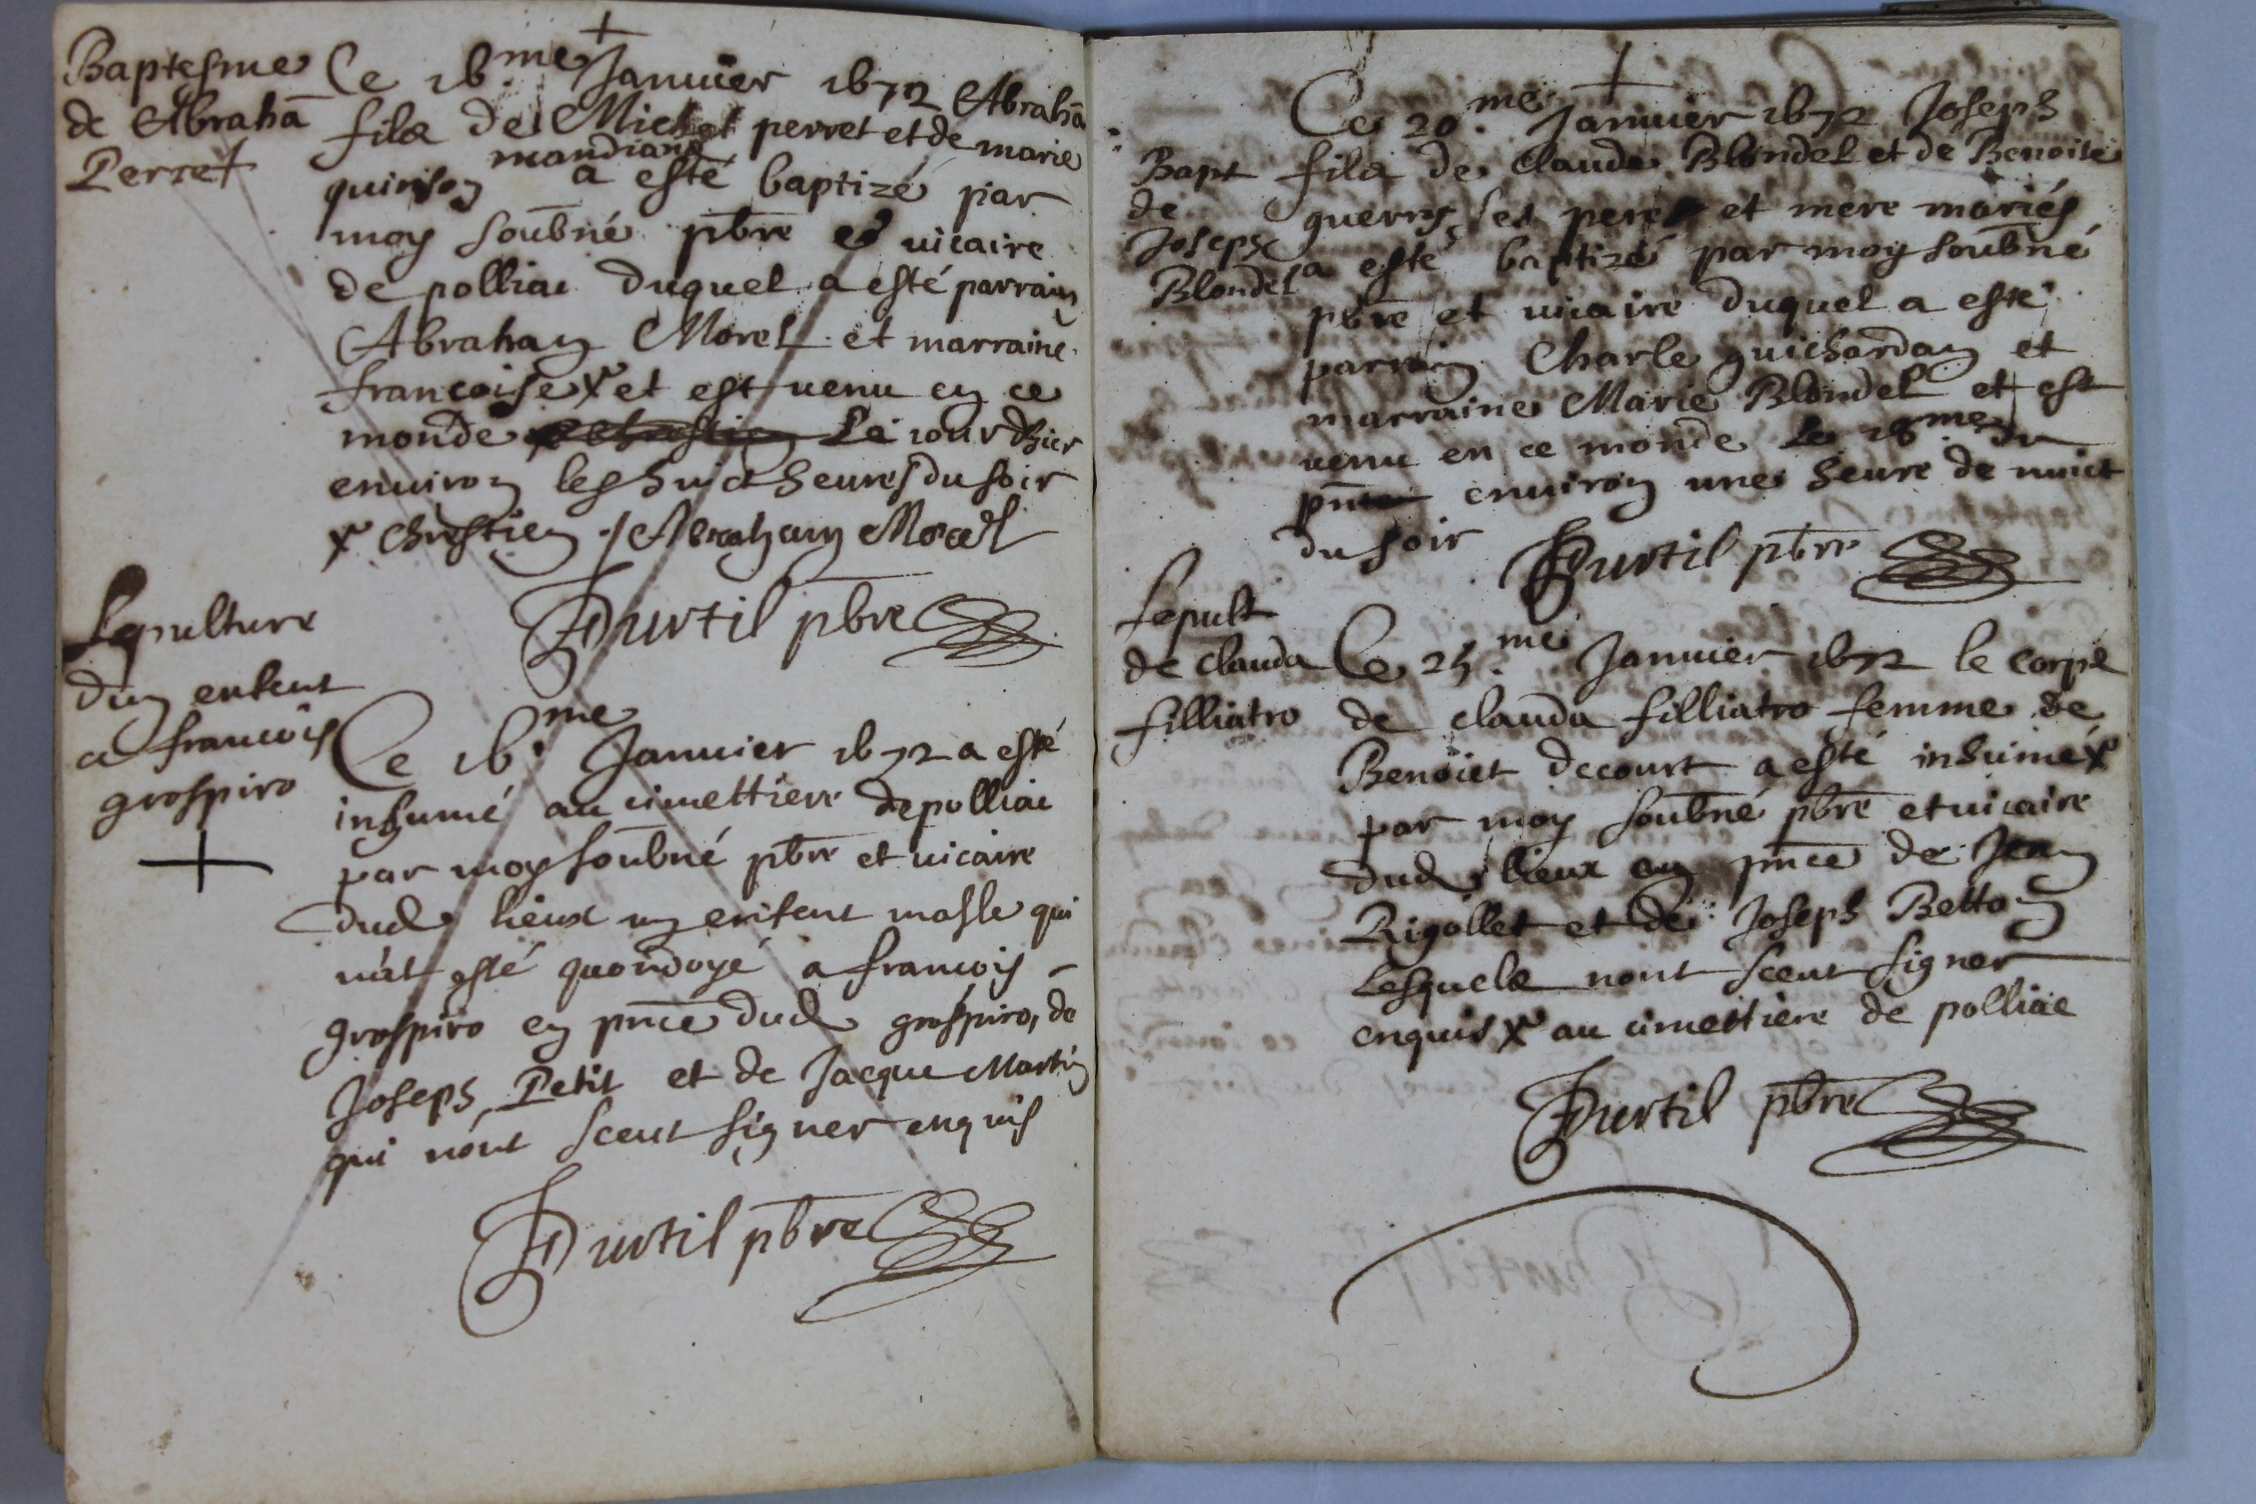 Baptesme
de Abrahā
Perret
Ce 16.me Januier 1672 Abrahā
fils de Michel perret et de marie
quinson mandians a esté baptizé par
moy soubné pbre et uicaire
de polliac duquel a esté parrain
Abraham Morel et marraine
francoise x et est uenu en ce
monde Le iour dhier
enuiron les huict heures du soir
x chrestien ./ Abraham Morel
Durtil pbre
Sepulture
dun enfent
a francois
grospiro
Ce 16.me Januier 1672 a esté
inhumé au cimettiere de polliac
par moy soubné pbre et uicaire
dud lieux un enfent masle qui
nat esté quondoyé a francois
grospiro en pnce dud grospiro, de
Joseph Petit et de Jacque Martin
qui nont sceut signer enquis
Durtil pbre
Bapt
de
Joseph
Blondel
Ce 20.me Januier 1672 Joseph
fils de Claude Blondel et de Benoite
guerry ses pere et mere mariés
a esté baptizé par moy soubné
pbre et uicaire duquel a esté
parrain Charle guichardan et
marraine Marie Blondel et est
uenu en ce monde Le 18.me du
pnt enuiron une heure de nuict
du soir
Durtil pbre
Sepult
de clauda
filliatro
Ce 25.me Januier 1672 le corps
de clauda filliatro femme de
Benoict decourt a esté inhumé x
par moy soubné pbre et uicaire
dud lieux en pnce de Jean
Rigollet et de Joseph Betton
Lesquels nont sceut signer
enquis x au cimettiere de polliac
Durtil pbre